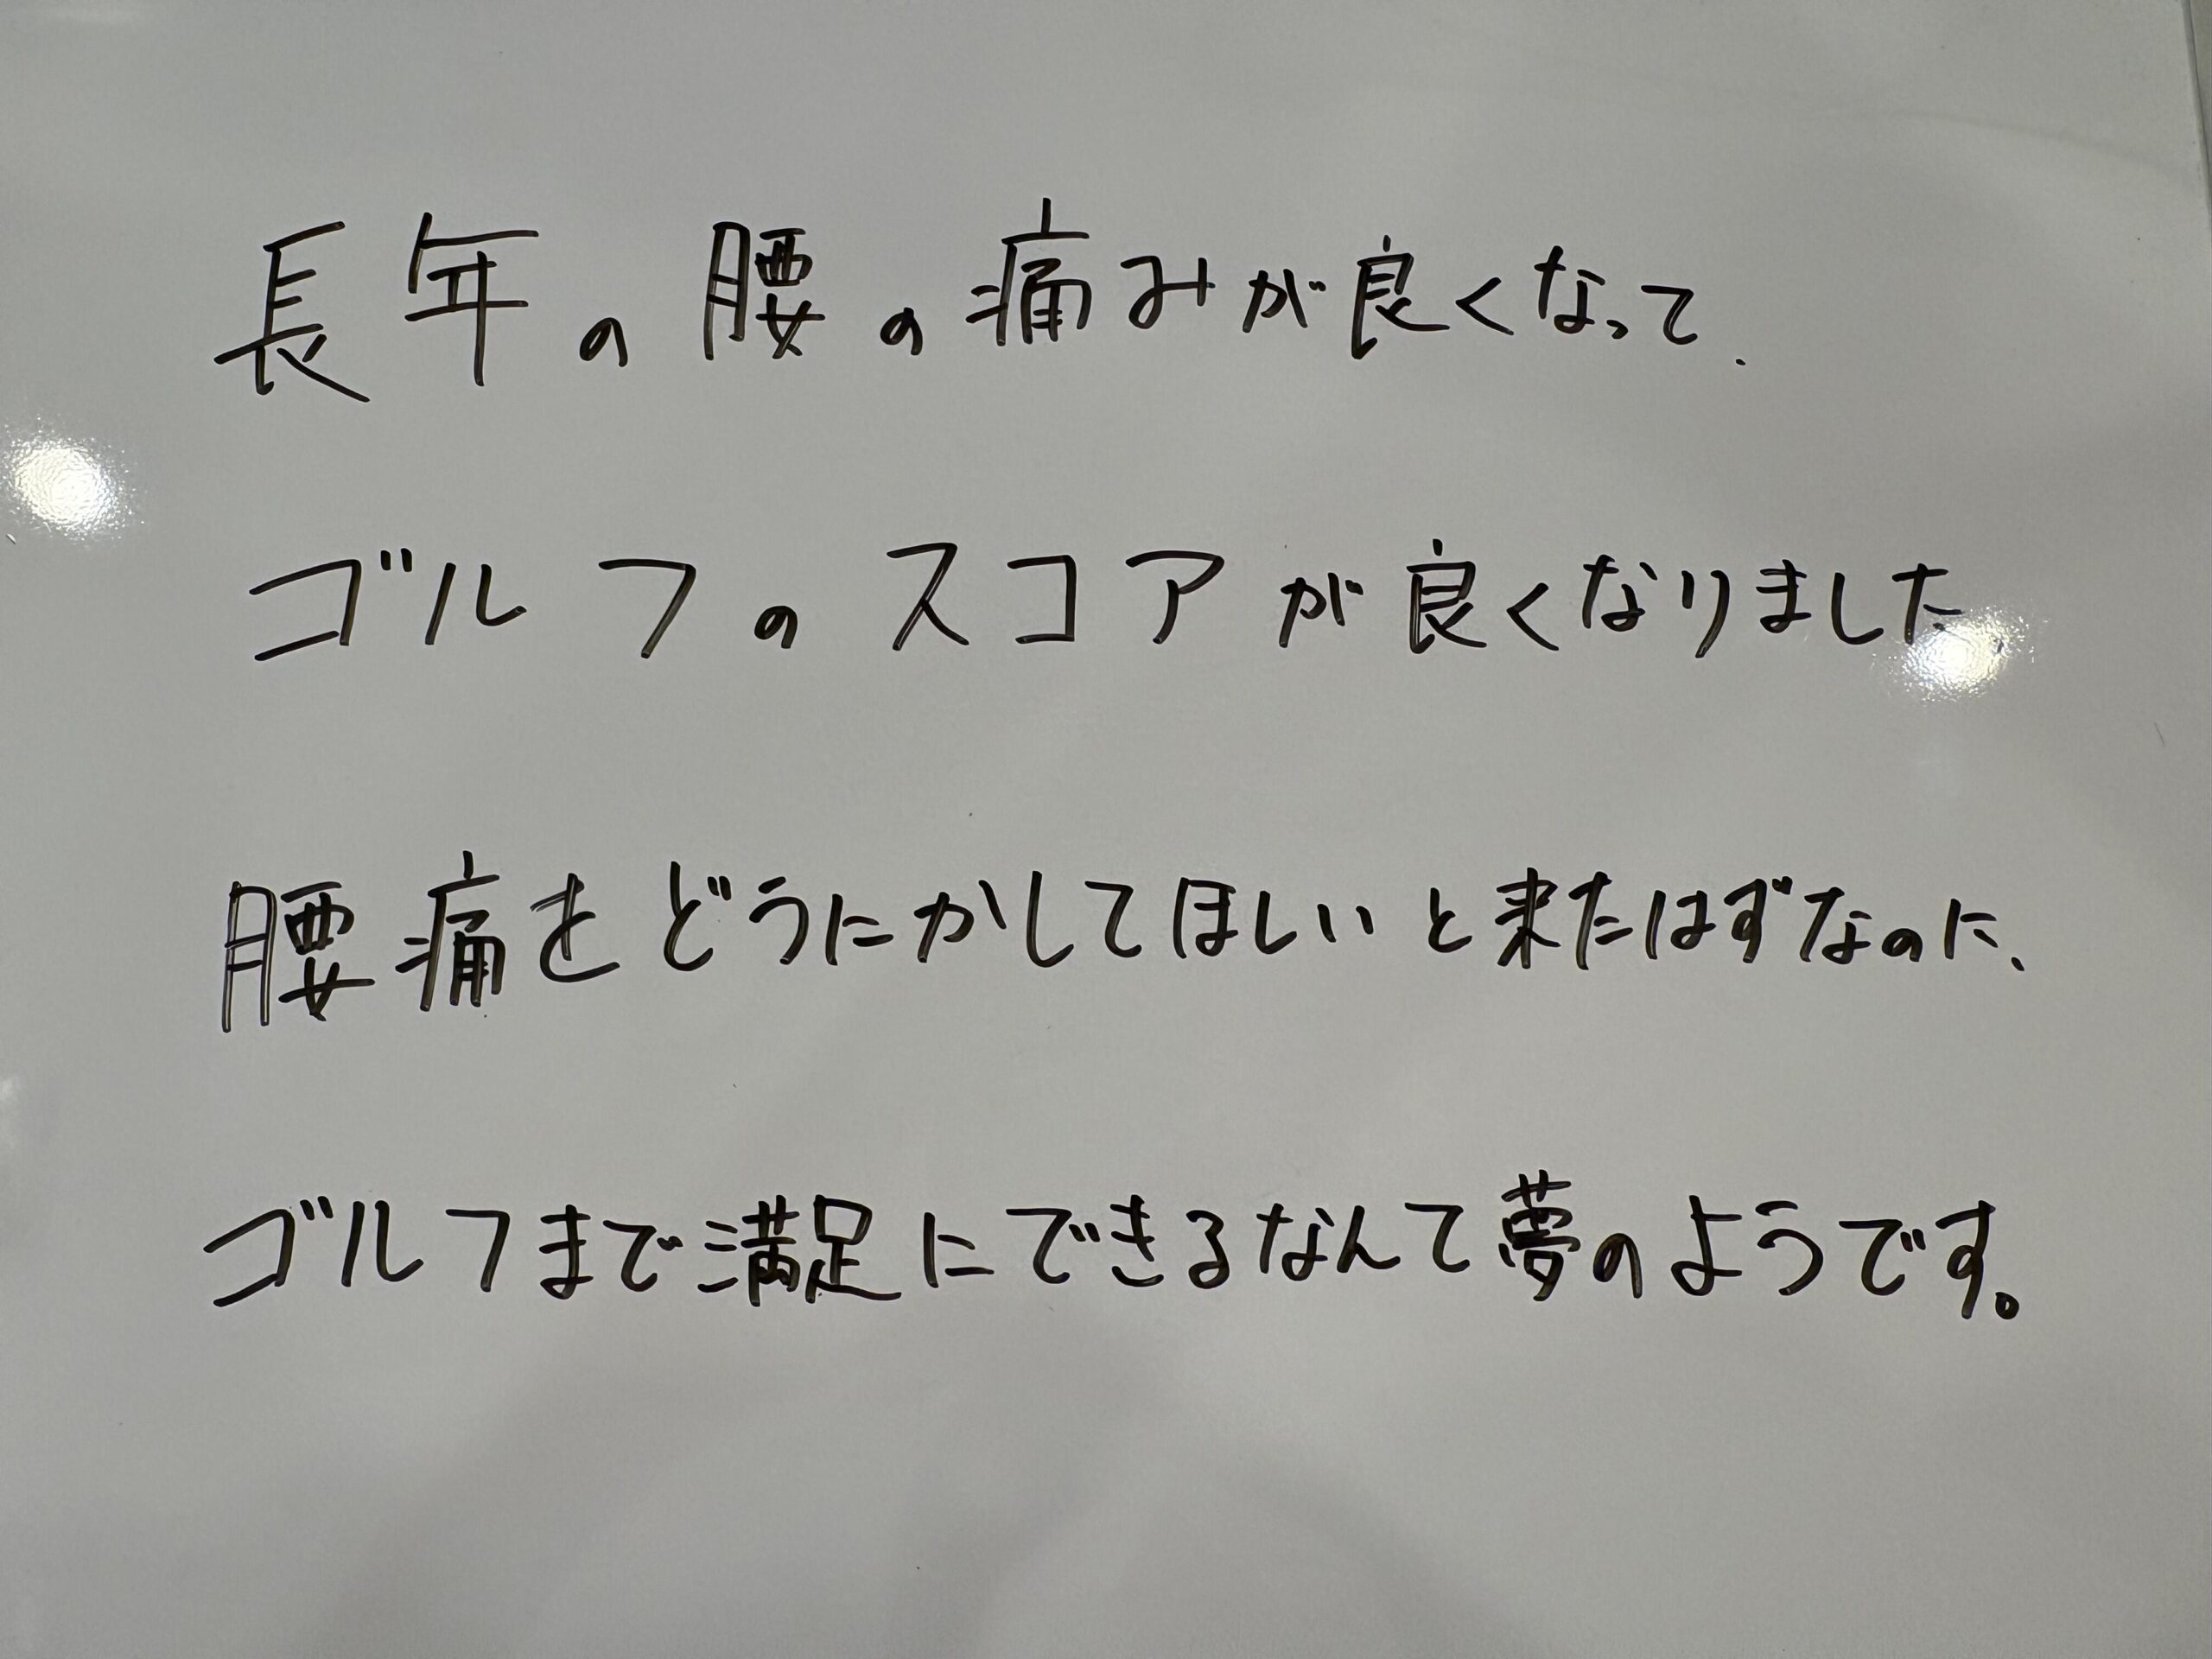 長年の腰の痛みが良くなって、
ゴルフのスコアが良くなりました
腰痛をどうにかしてほしいと来たはずなのに、
ゴルフまで満足にできるなんて夢のようです。